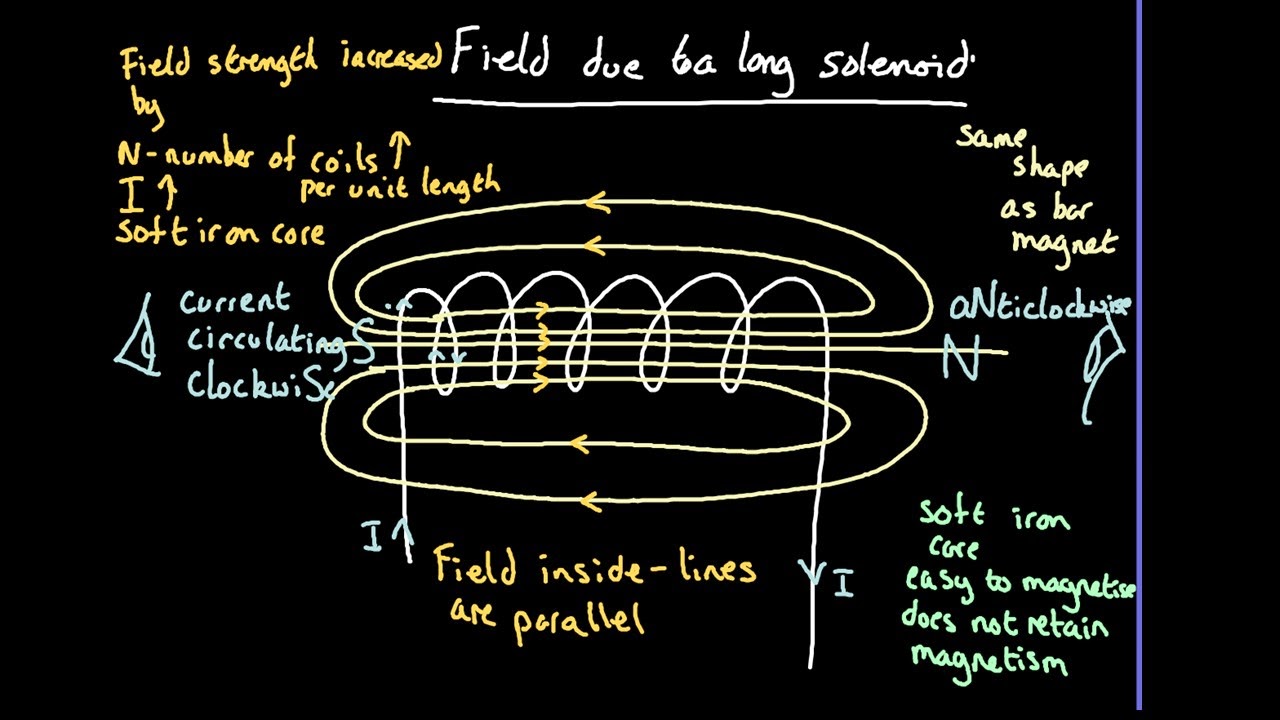 Field due to a long solenoid
Field strength increased
by
N-number of coils ↑
per unit length
I ↑
soft iron core
same
shape
as bar
magnet
current
circulating S
clockwiSe
aNticlockwise
N
I
I
Field inside-lines
are parallel
soft iron
core
easy to magnetise
does not retain
magnetism